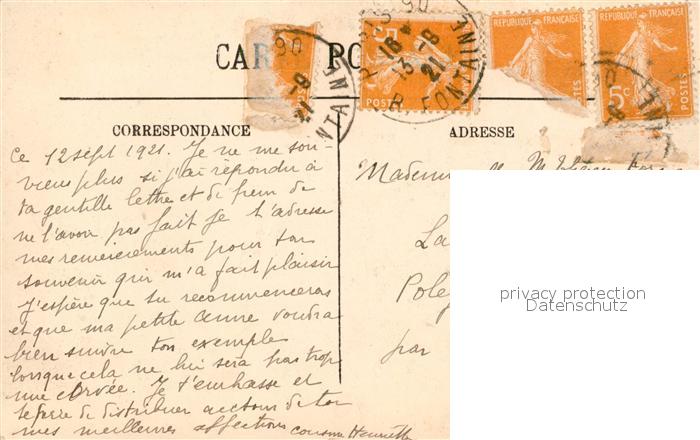 CAR POS
RÉPUBLIQUE FRANÇAISE
POSTES
5c
CORRESPONDANCE
ADRESSE
ce 12 sept 1921. Je ne me sou
viens plus si j'ai répondu à
ta gentille lettre et de peur de
ne l'avoir pas fait je t'adresse
mes remerciements pour ton
souvenir qui m'a fait plaisir
J'espère que tu recommenceras
et que ma petite Anne voudra
bien suivre ton exemple
lorsque cela ne lui sera pas trop
une corvée. Je t'embrasse et
te prie de distribuer autour de toi
mes meilleures affections cousine Henriette
La
par
privacy protection
Datenschutz